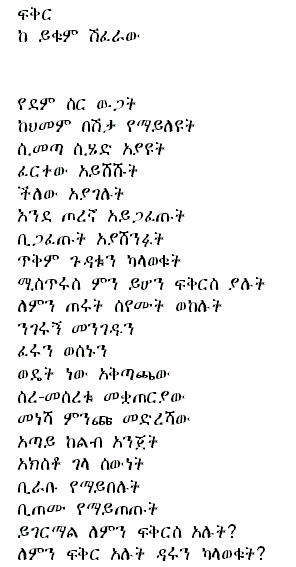 ፍቅር
ከ ይቁም ሽፈራው
የደም ስር ውጋት
ከህመም በሽታ የማይለዩት
ሲመጣ ሲሄድ አያዩት
ፈርተው አይሸሹት
ችለው አያገሉት
እንደ ጦረኛ አይጋፈጡት
ቢጋፈጡት አያሸንፏት
ጥቅም ጉዳቱን ካላወቁት
ሚስጥሩስ ምን ይሆን ፍቅርስ ያሉት
ለምን ጠሩት ሰየሙት ወከሉት
ንገሩኝ መንገዱን
ፈሩን ወሰኑን
ወዴት ነው አቅጣጫው
ስረ-መሰረቱ መቋጠርያው
መነሻ ምንጩ መድረሻው
አጣይ ከልብ አንጀት
አክስቶ ገላ ሰውነት
ቢራቡ የማይበሉት
ቢጠሙ የማይጠጡት
ይገርማል ለምን ፍቅርስ አሉት?
ለምን ፍቅር አሉት ዳሩን ካላወቁት?